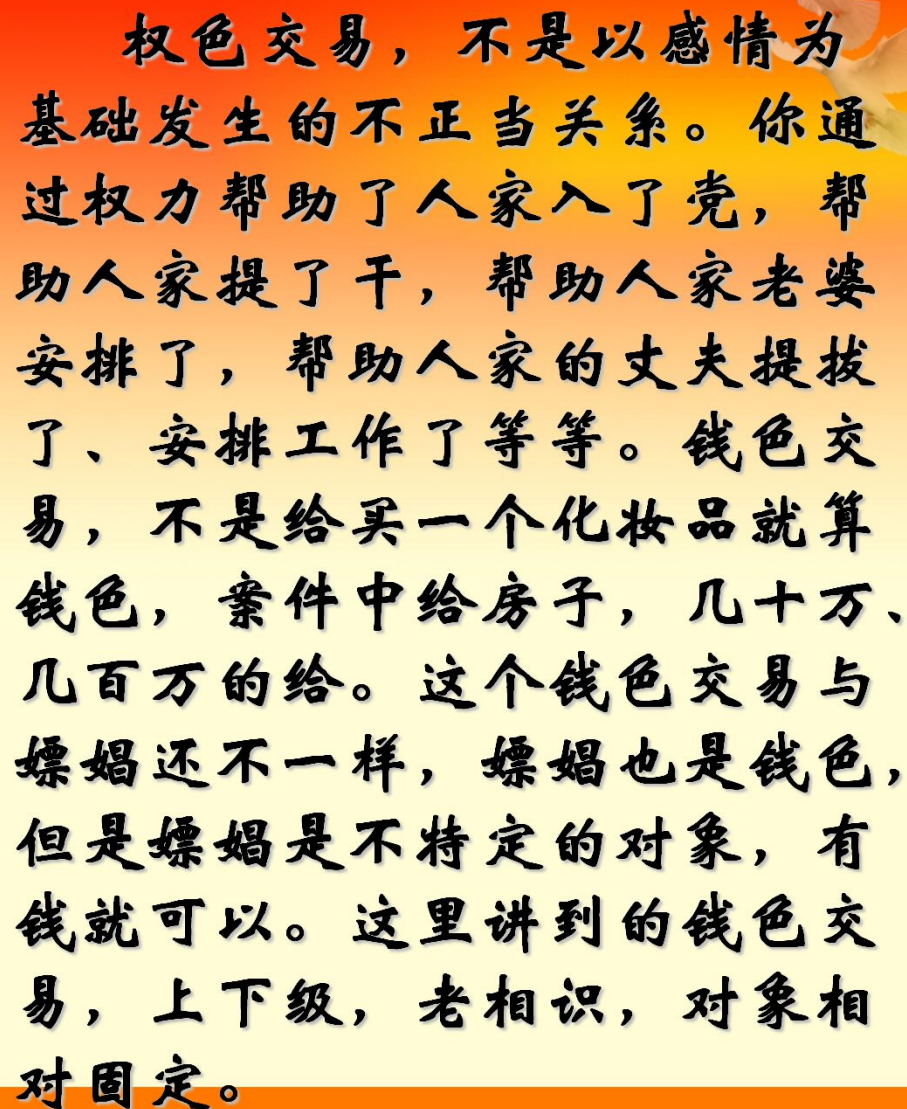 权色交易，不是以感情为
基础发生的不正当关系。你通
过权力帮助了人家入了党，帮
助人家提了干，帮助人家老婆
安排了，帮助人家的丈夫提拔
了、安排工作了等等。钱色交
易，不是给买一个化妆品就算
钱色，案件中给房子，几十万、
几百万的给。这个钱色交易与
嫖娼还不一样，嫖娼也是钱色，
但是嫖娼是不特定的对象，有
钱就可以。这里讲到的钱色交
易，上下级，老相识，对象相
对固定。